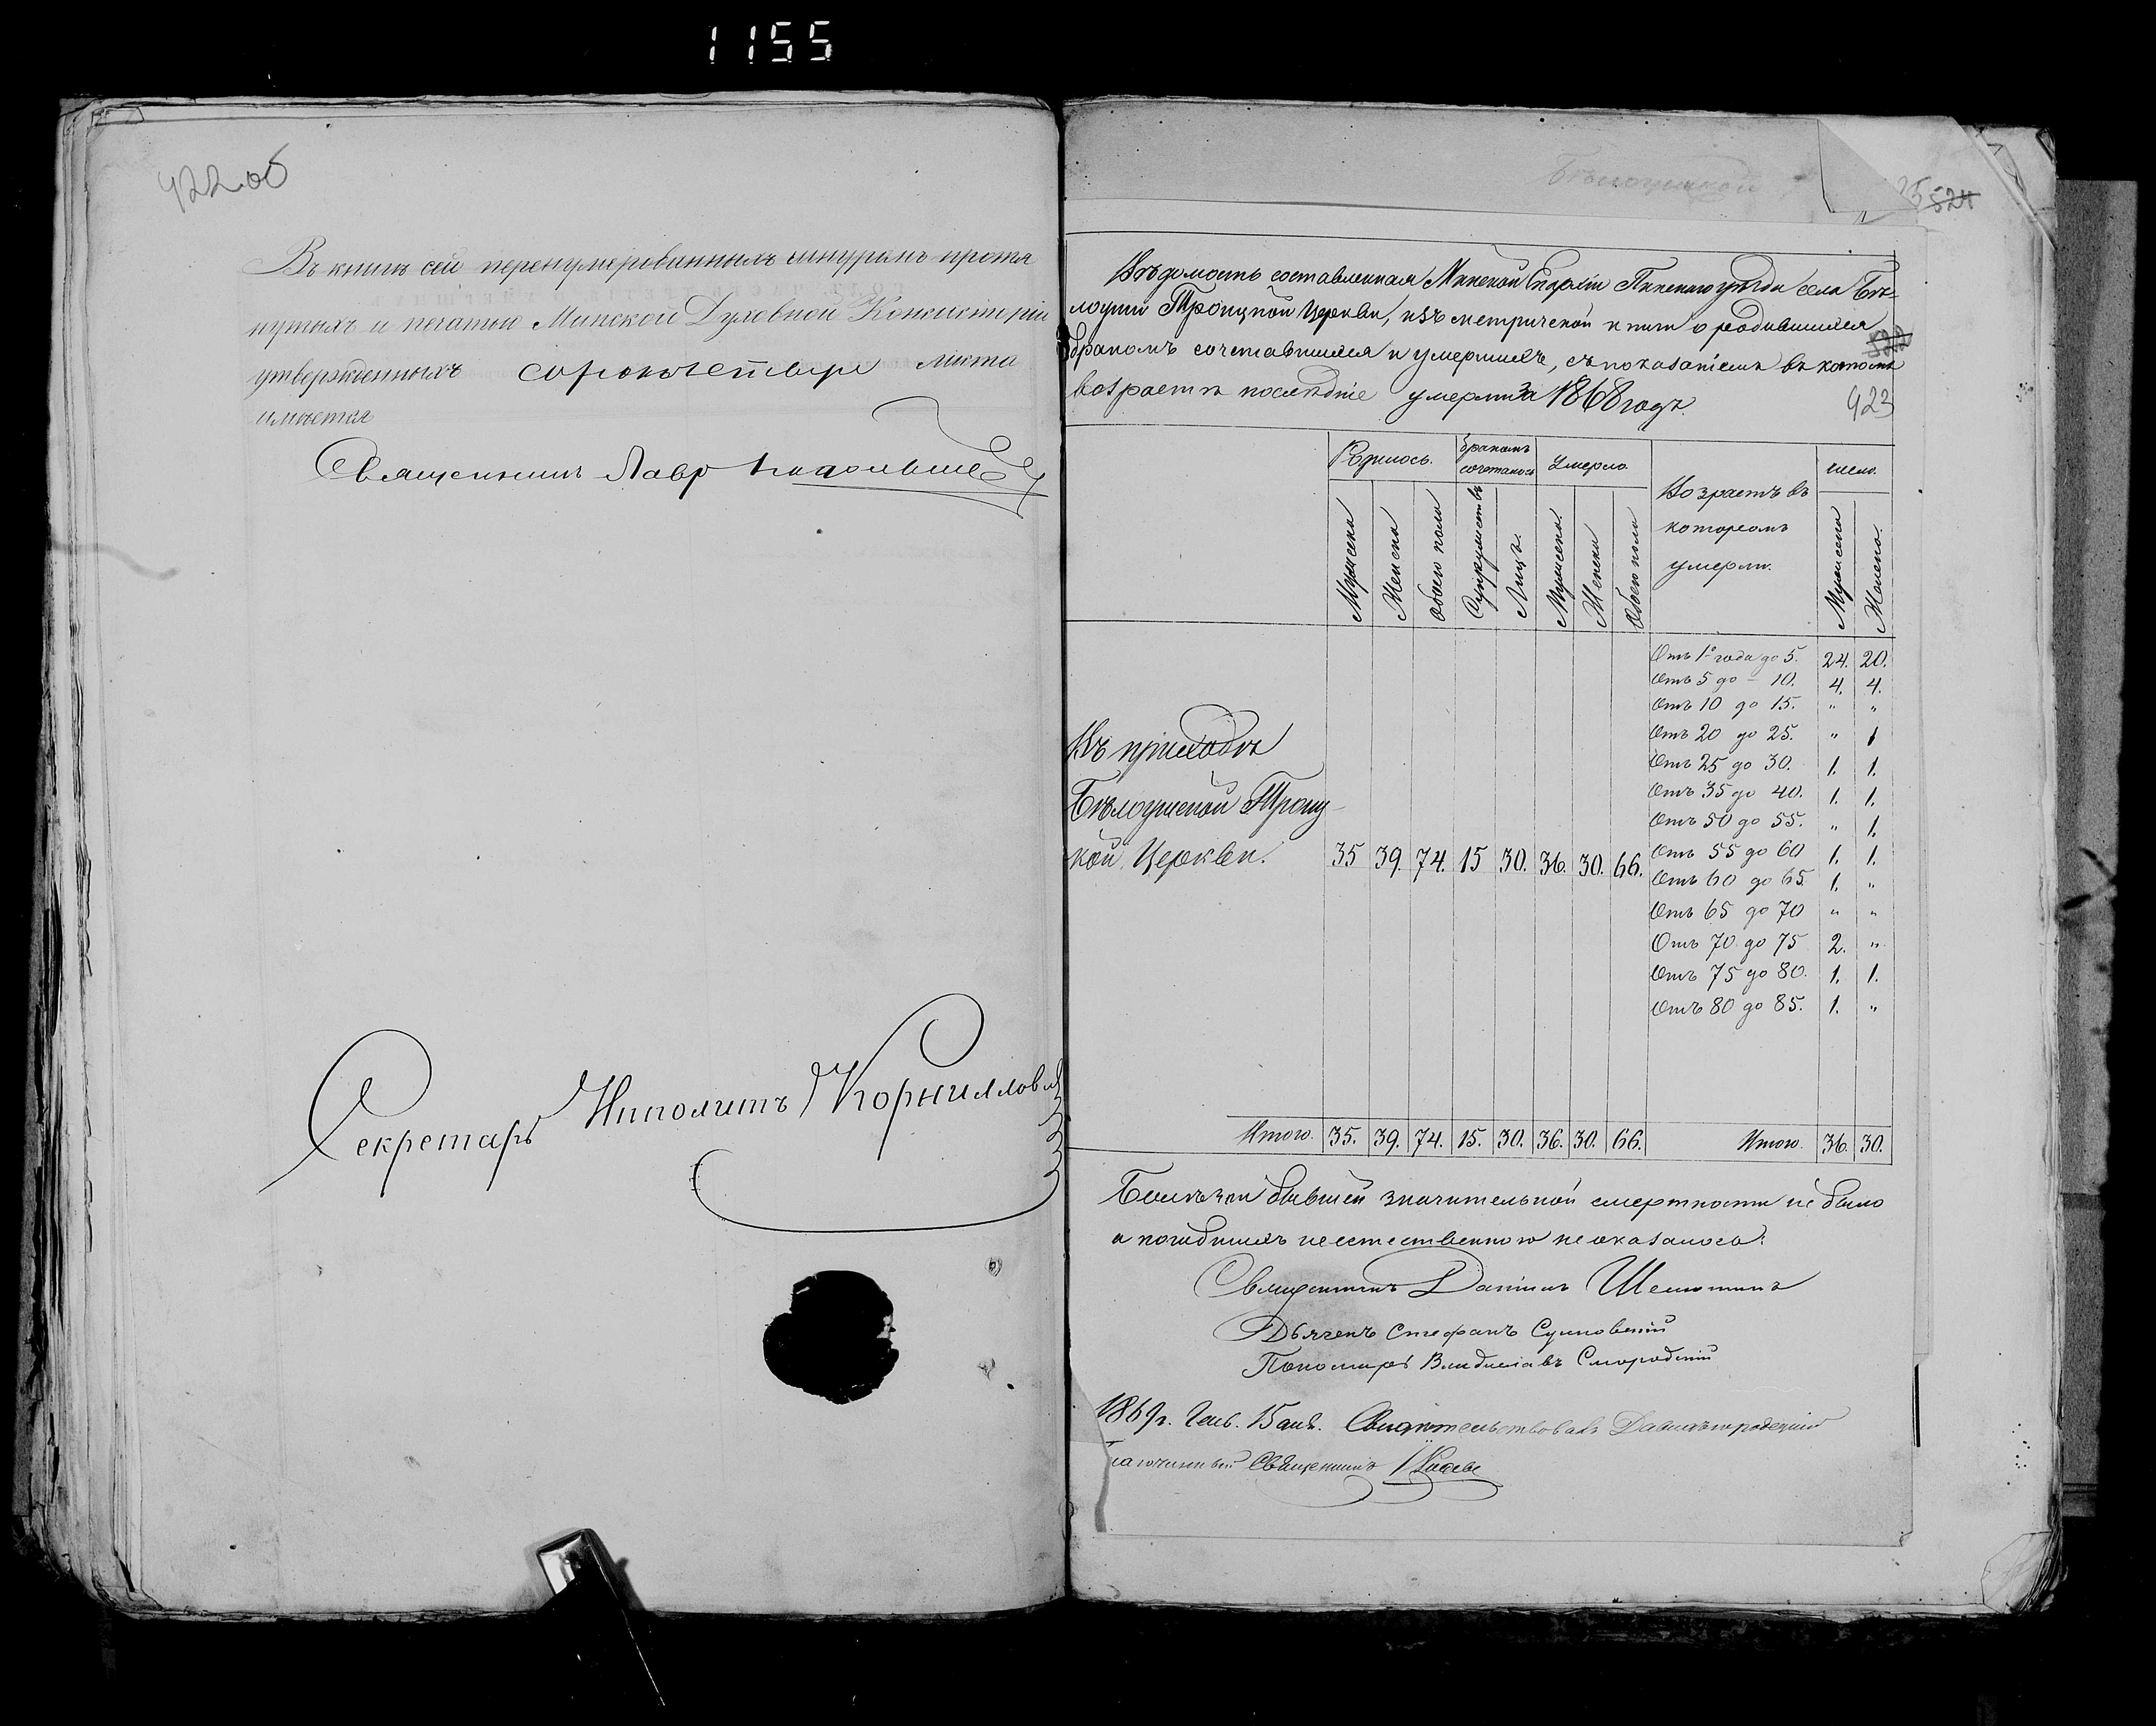 1155
422 об
Въ книгѣ сей перенумерованныхъ шнуромъ протя
нутыхъ и печатью Минской Духовной Консисторіи
утвержденныхъ сорокъ четыре листа
имѣется
Священникъ Лавръ
Секретарь Ипполитъ Корниллович
524
Вѣдомость составленная Минской Епархіи Пинскаго уѣзда села Бѣ-
лоуши Троицкой Церкви, изъ метрической книги о родившихся
бракомъ сочетавшихся и умершихъ, съ показаніемъ въ какомъ
возрастѣ послѣдніе умерли за 1868 годъ.
423
Родилось. Бракомъ сочеталось Умерло. Возрастъ въ которомъ умерли. число.
Мужеска Женска Обоего пола Супружествъ Лицъ. Мужеска. Женска Обоего пола Мужеска Женска.
Отъ 1го года до 5. 24. 20.
Отъ 5 до - 10. 4. 4.
Отъ 10 до 15. " "
Отъ 20 до 25. " 1
Отъ 25 до 30. 1. 1.
Отъ 35 до 40. 1. 1.
Отъ 50 до 55. " 1.
Отъ 55 до 60 1. 1.
Отъ 60 до 65. 1. "
Отъ 65 до 70 " "
Отъ 70 до 75 2. "
Отъ 75 до 80. 1. 1.
Отъ 80 до 85. 1. "
Въ приходѣ
Бѣлоушской Троиц-
кой Церкви. 35 39. 74. 15 30. 36. 30. 66.
Итого. 35. 39. 74. 15. 30. 36. 30. 66. Итого. 36. 30.
Болѣзни бывшей значительной смертности не было
и погибшихъ неестественною не оказалось.
Священникъ Даніилъ
Дьячекъ Стефанъ
Пономарь Владиславъ Смородскій
1869 г. Генв. 15 дня. Свидѣтельствовалъ Давидъгородецкій
лагочинный Священникъ